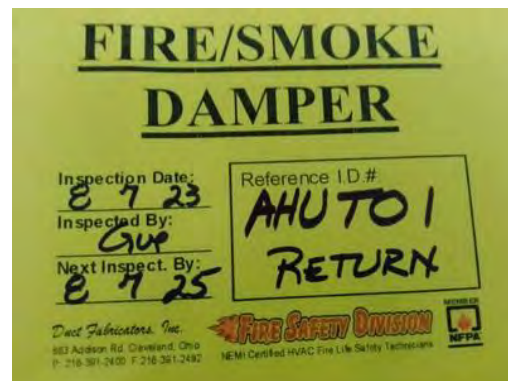 FIRE/SMOKE
DAMPER
Inspection Date:
8 7 23
Inspected By:
Gue
Next Inspect. By:
8 7 25
Reference I.D.#
AHU TO 1
RETURN
Duct Fabricators, Inc.
883 Addison Rd. Cleveland, Ohio
P. 216-391-2400 F. 216-391-2492
FIRE SAFETY DIVISION
NEMI Certified HVAC Fire Life Safety Technicians
MEMBER
NFPA